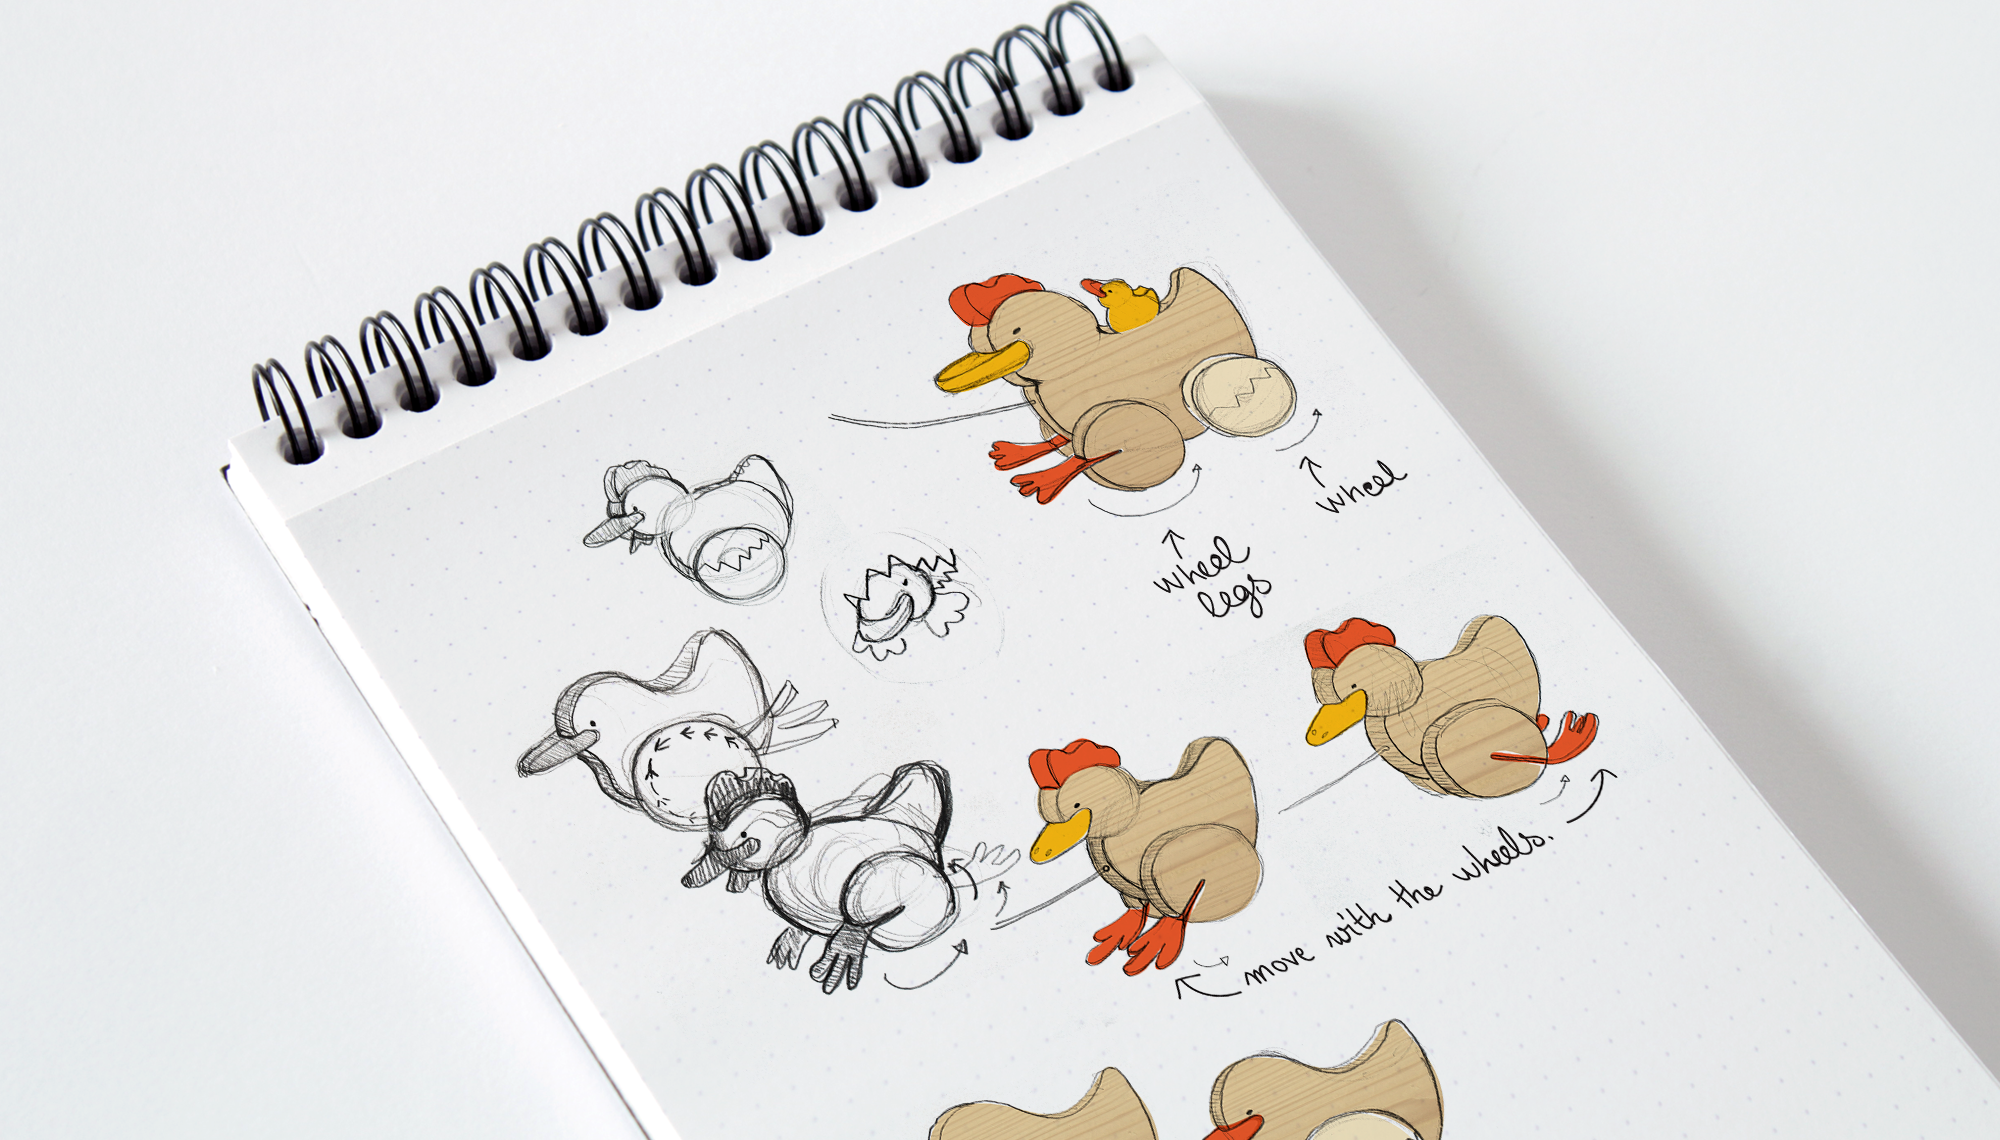 wheel
wheel
legs
move with the wheels.